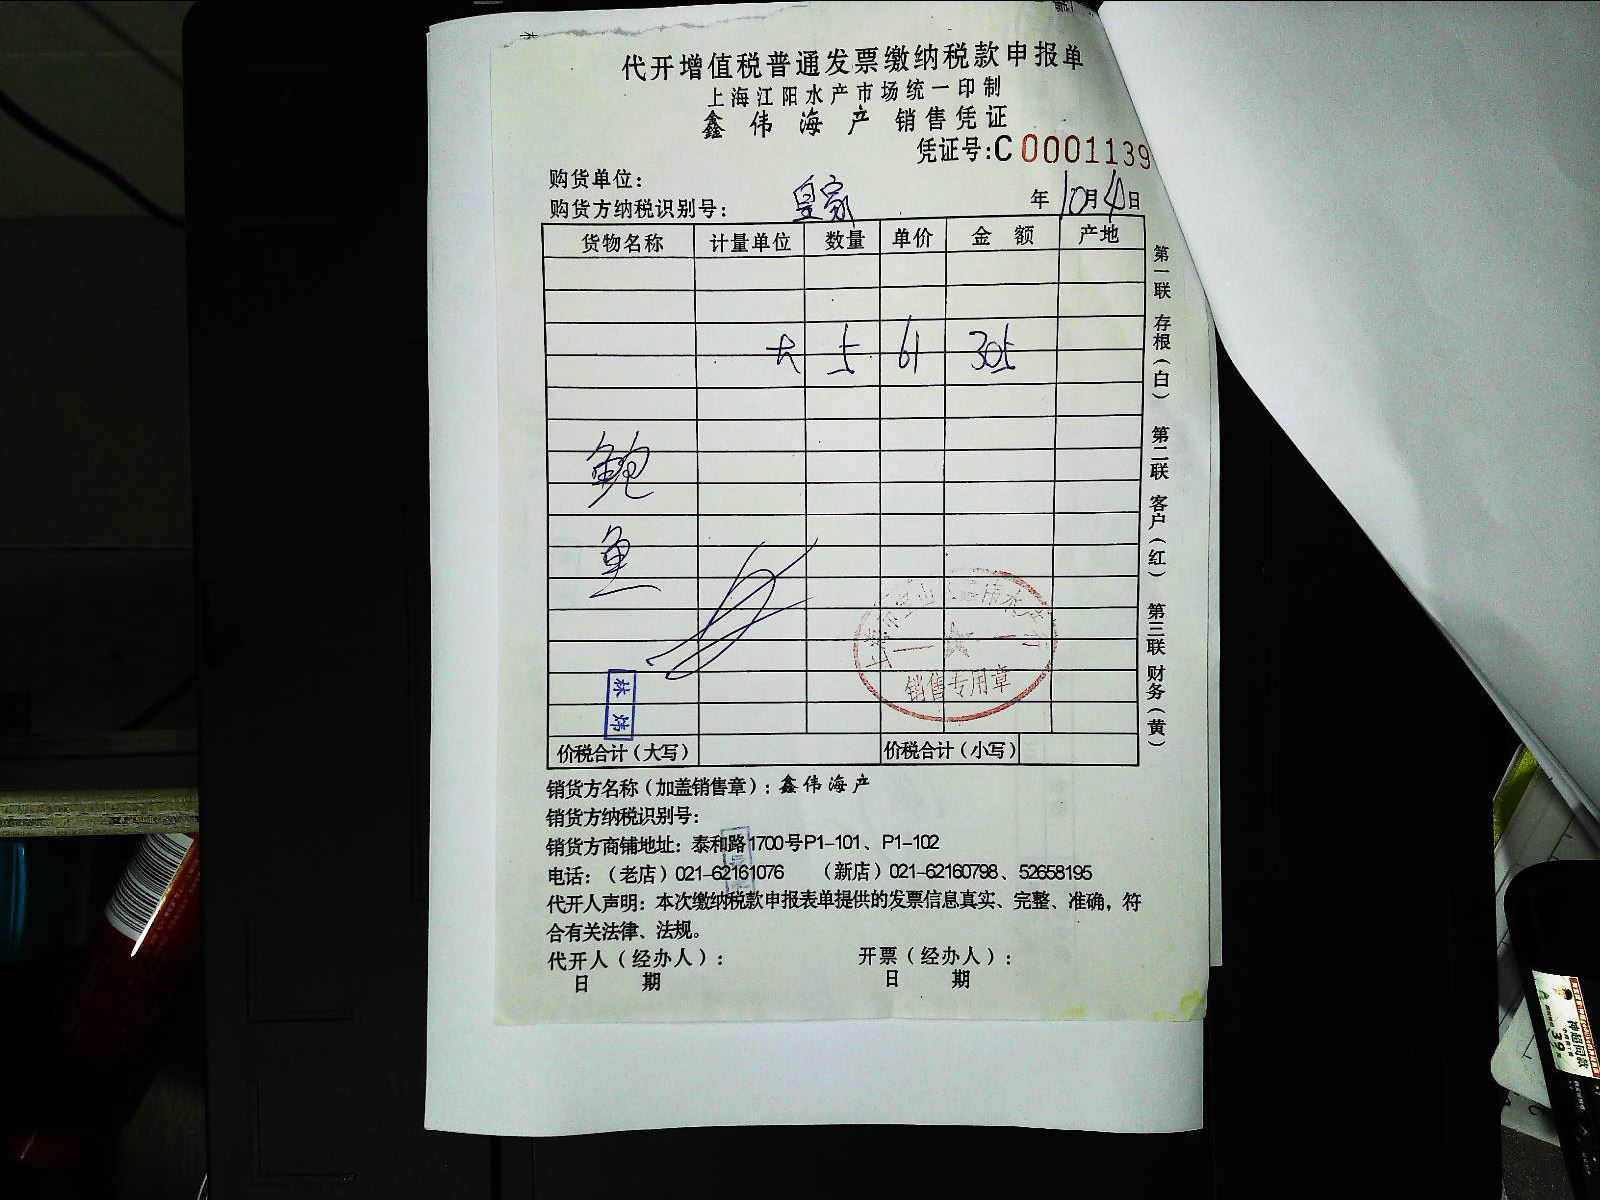 代开增值税普通发票缴纳税款申报单
上海江阳水产市场统一印制
鑫伟海产 销售凭证
凭证号:C 0001139
购货单位:
购货方纳税识别号: 皇家 年10月4日
货物名称 计量单位 数量 单价 金额 产地
大 5 61 305
鲍
鱼
销售专用章
林炜
价税合计(大写) 价税合计(小写)
销货方名称(加盖销售章):鑫伟海产
销货方纳税识别号:
销货方商铺地址:泰和路1700号P1-101、P1-102
电话:(老店)021-62161076 (新店)021-62160798、52658195
代开人声明:本次缴纳税款申报表单提供的发票信息真实、完整、准确,符
合有关法律、法规。
代开人(经办人): 开票(经办人):
日 期 日 期
第一联 存根(白) 第二联 客户(红) 第三联 财务(黄)